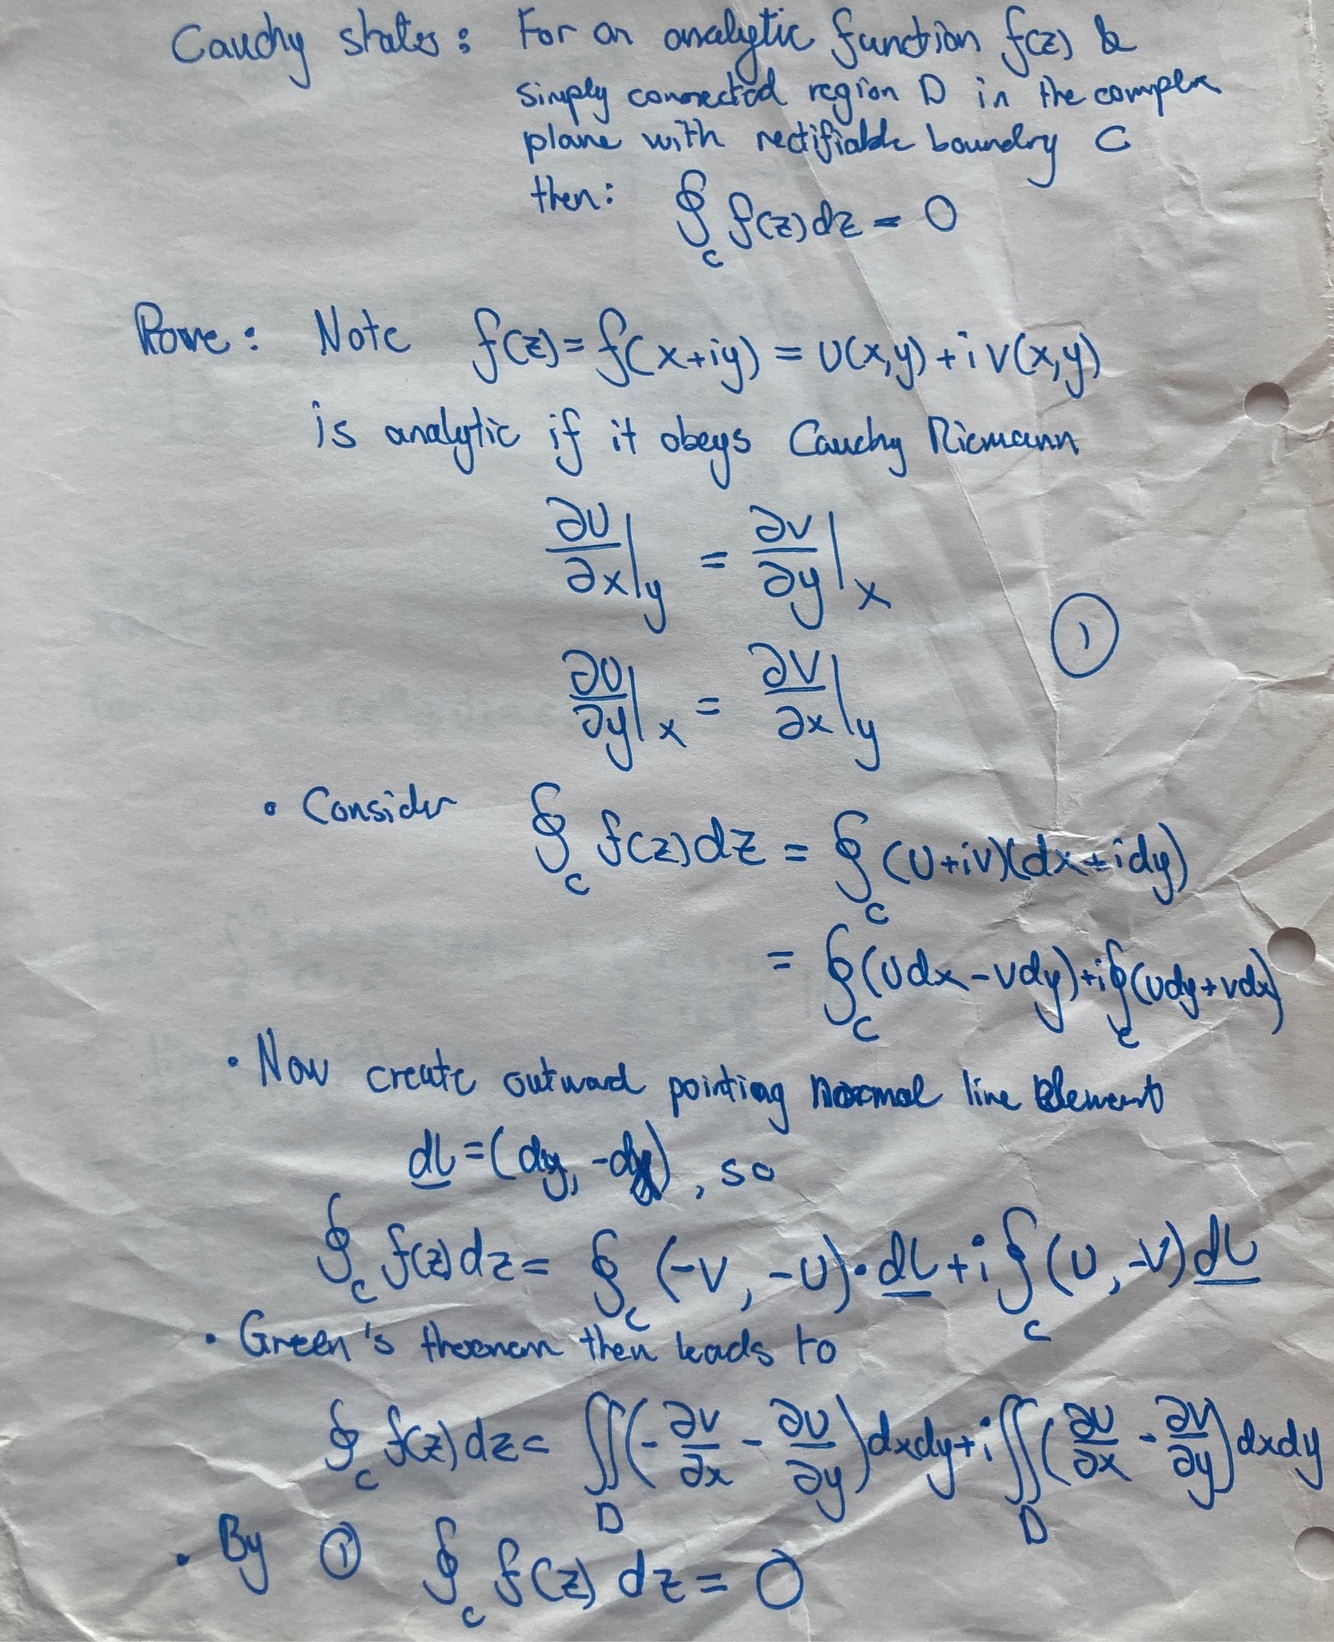 Cauchy states: For an analytic function f(z) &
simply connected region D in the complex
plane with rectifiable boundry C
then: ∮_C f(z)dz = 0
Prove: Note f(z) = f(x+iy) = U(x,y) + iV(x,y)
is analytic if it obeys Cauchy Riemann
∂U/∂x|_y = ∂V/∂y|_x
①
∂U/∂y|_x = ∂V/∂x|_y
• Consider ∮_C f(z)dz = ∮_C (U+iV)(dx+idy)
= ∮_C (Udx - Vdy) + i∮_C (Udy + Vdx)
• Now create outward pointing normal line element
dl = (dy, -dx), so
∮_C f(z)dz = ∮_C (-V, -U)·dl + i∮_C (U, -V)dl
• Green's theorem then leads to
∮_C f(z)dz = ∬_D (-∂V/∂x - ∂U/∂y)dxdy + i∬_D (∂U/∂x - ∂V/∂y)dxdy
• By ① ∮_C f(z)dz = 0